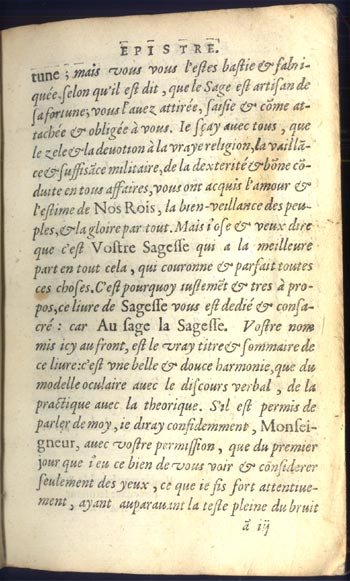 EPISTRE.
tune ; mais vous vous l'estes bastie & fabri-
quée. selon qu'il est dit , que le Sage est artisan de
sa fortune, vous l'auez attirée, saisie & cõme at-
tachée & obligée à vous. Ie sçay auec tous , que
le zele & la deuotion à la vraye religion, la vaillã-
ce & suffisãce militaire, de la dexterité & bõne cõ-
duite en tous affaires, vous ont acquis l'amour &
l'estime de Nos Rois, la bien-veillance des peu-
ples, & la gloire par tout. Mais i'ose & veux dire
que c'est Vostre Sagesse qui a la meilleure
part en tout cela , qui couronne & parfait toutes
ces choses. C'est pourquoy iustemẽt & tres à pro-
pos, ce liure de Sagesse vous est dedié & consa-
cré : car Au sage la Sagesse. Vostre nom
mis icy au front, est le vray titre & sommaire de
ce liure: c'est vne belle & douce harmonie, que du
modelle oculaire auec le discours verbal , de la
practique auec la theorique. S'il est permis de
parler de moy , ie diray confidemment, Monsei-
gneur, auec vostre permission , que du premier
jour que i'eu ce bien de vous voir & considerer
seulement des yeux , ce que ie fis fort attentiue-
ment , ayant auparauant la teste pleine du bruit
ã ij